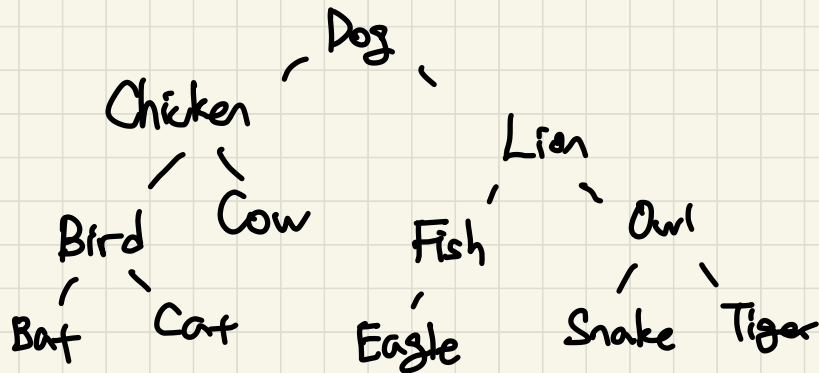 Dog
Chicken
Lion
Bird
Cow
Fish
Owl
Bat
Cat
Eagle
Snake
Tiger